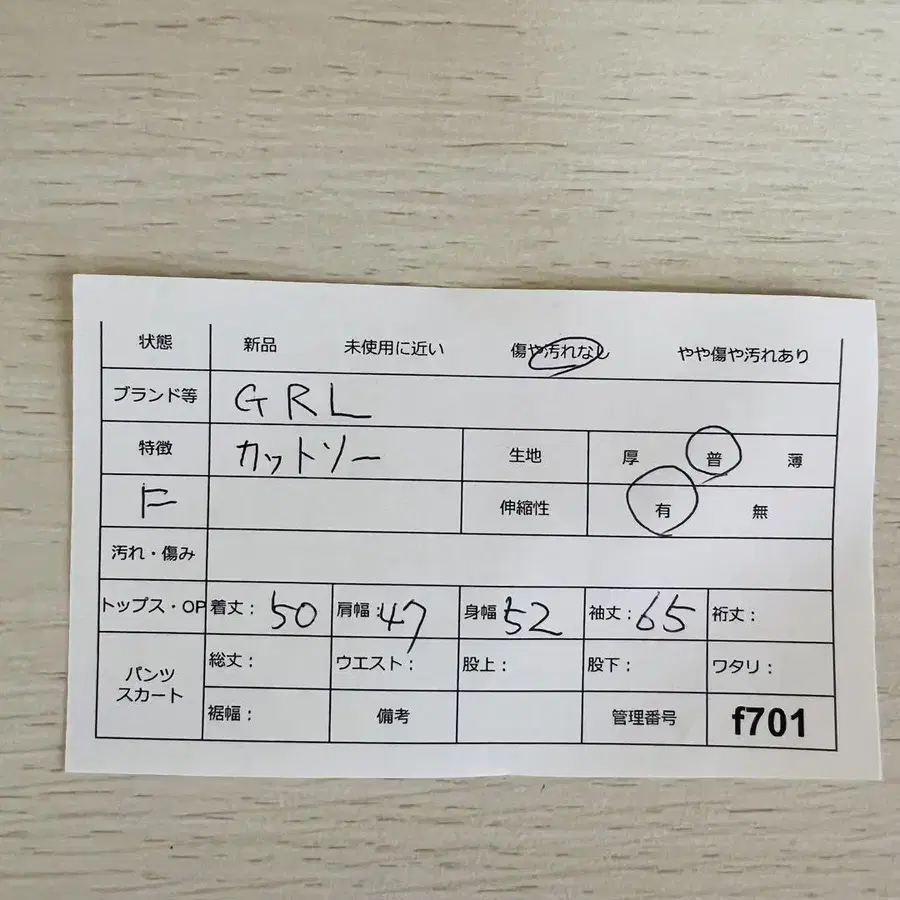 状態 新品 未使用に近い 傷や汚れなし やや傷や汚れあり
ブランド等 GRL
特徴 カットソー 生地 厚 普 薄
F 伸縮性 有 無
汚れ・傷み
トップス・OP 着丈: 50 肩幅: 47 身幅 52 袖丈: 65 裄丈:
パンツ スカート 総丈: ウエスト: 股上: 股下: ワタリ:
裾幅: 備考 管理番号 f701